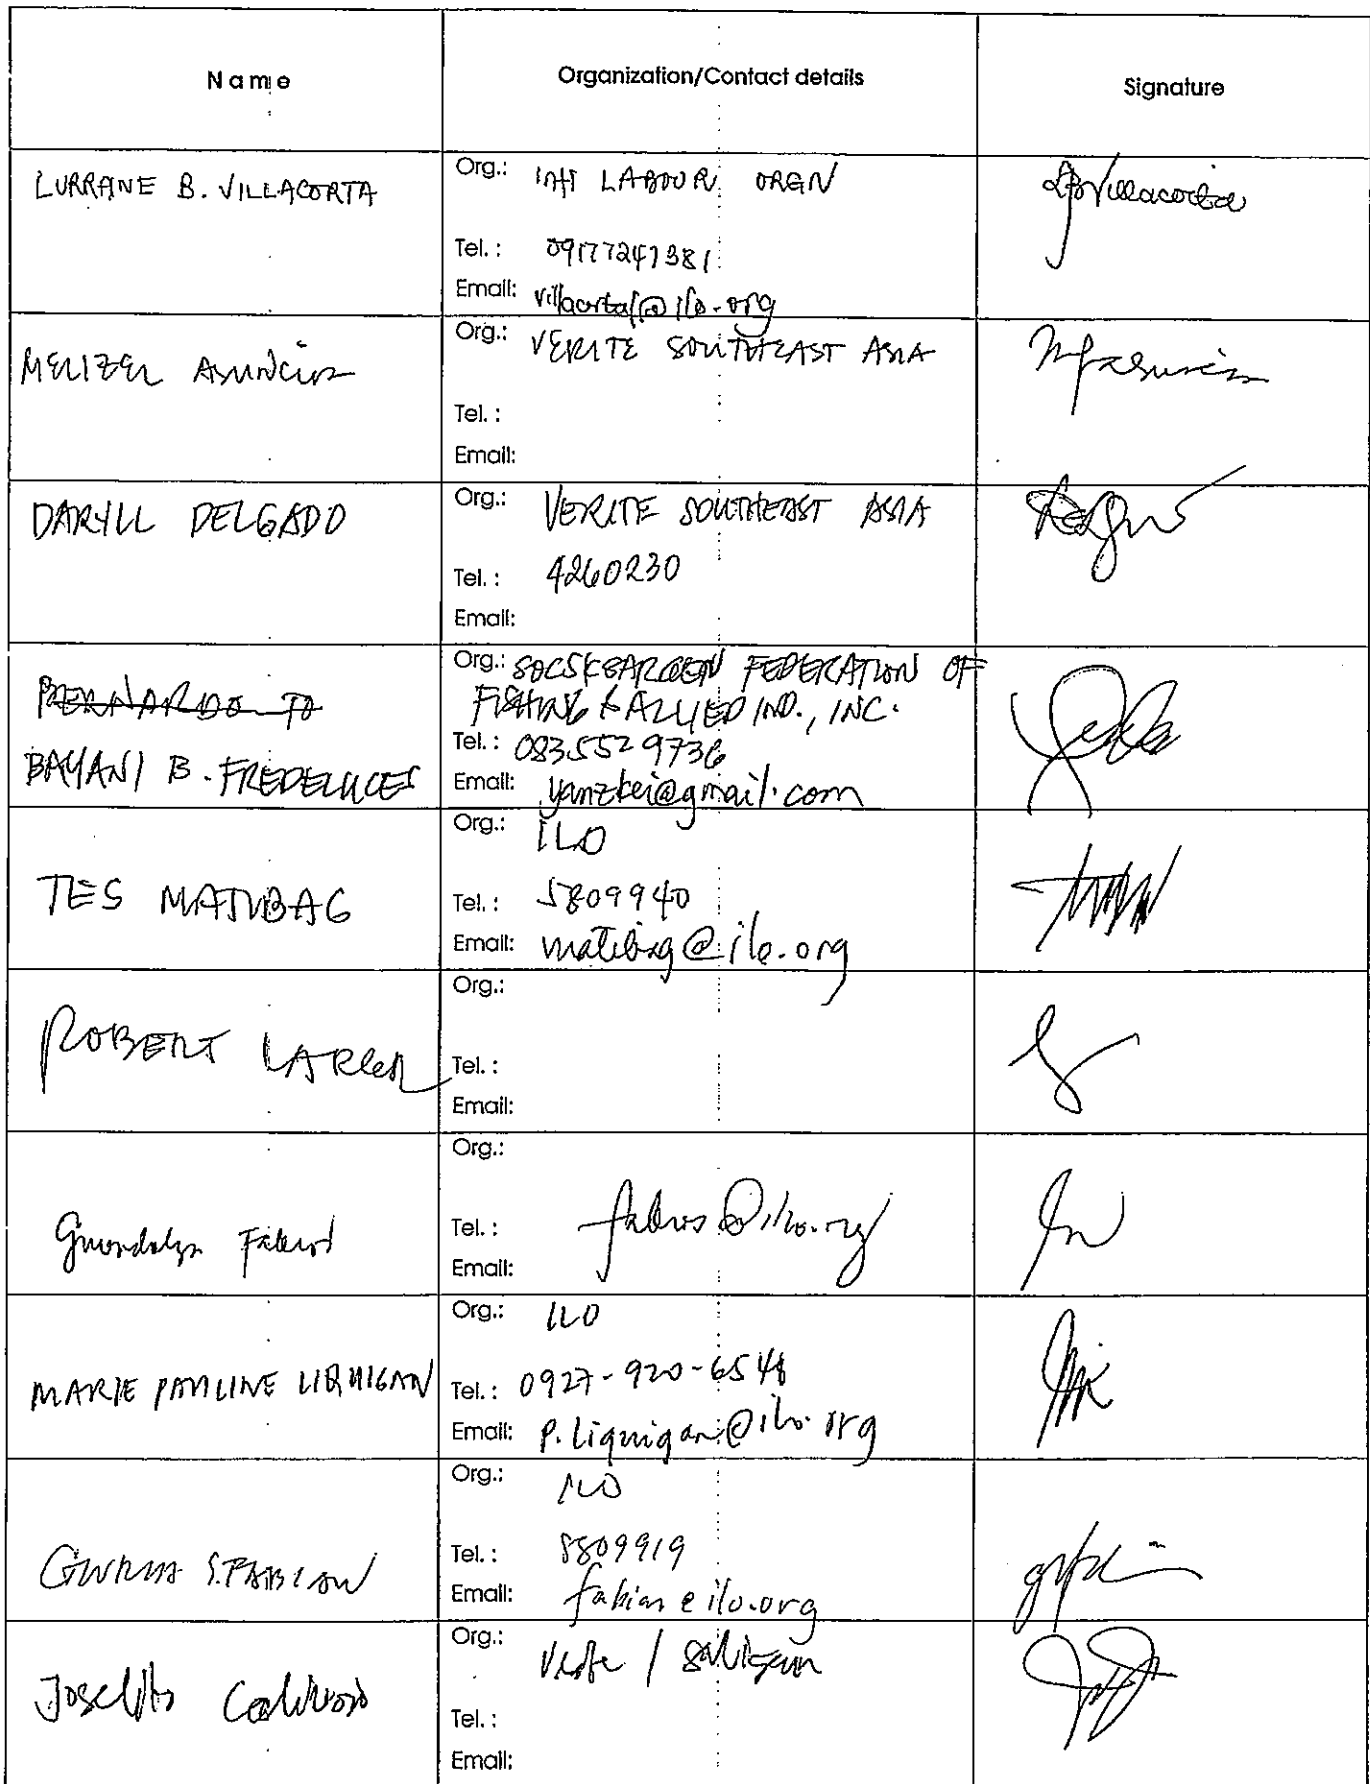 Name
Organization/Contact details
Signature
LURRANE B. VILLACORTA
Org.: Int'l LABOUR ORGN
Tel. : 09177247381
Email: villacorta@ilo.org
MELIZEL ASUNCION
Org.: VERITE SOUTHEAST ASIA
Tel. :
Email:
DARYLL DELGADO
Org.: VERITE SOUTHEAST ASIA
Tel. : 4260230
Email:
BERNARDO TO
BAYANI B. FREDELUCES
Org.: SOCSKSARGEN FEDERATION OF
FISHING & ALLIED IND., INC.
Tel.: 0835529736
Email: yanzkei@gmail.com
TES MATIBAG
Org.: ILO
Tel. : 5809940
Email: matibag@ilo.org
ROBERT LARGA
Org.:
Tel. :
Email:
Gwendolyn Fabros
Org.:
Tel. :
Email: fabros@ilo.org
MARIE PAULINE LIQUIGAN
Org.: ILO
Tel.: 0927-920-6548
Email: p.liquigan@ilo.org
S. FABIAN
Org.: ILO
Tel. : 5809919
Email: fabian@ilo.org
Joselito Calivoso
Org.: Verite / Saligan
Tel. :
Email: